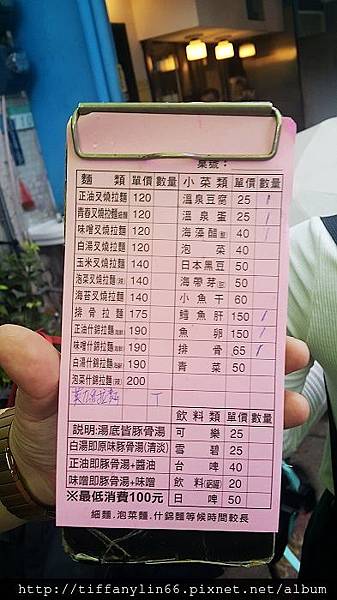 桌號：
麵 類 單價 數量 小菜類 單價 數量
正油叉燒拉麵 120 溫泉豆腐 25
青春叉燒拉麵 120 溫泉蛋 25
味噌叉燒拉麵 120 海藻醋 40
白湯叉燒拉麵 120 泡菜 40
玉米叉燒拉麵 140 日本黑豆 50
泡菜叉燒拉麵(辣) 140 海帶芽 50
海苔叉燒拉麵 140 小魚干 60
排骨拉麵 175 鱈魚肝 150
正油什錦拉麵 190 魚卵 150
味噌什錦拉麵 190 排骨 65
白湯什錦拉麵 190 青菜 50
泡菜什錦拉麵(辣) 200
飲料類 單價 數量
說明:湯底皆豚骨湯 可樂 25
白湯即原味豚骨湯(清淡) 雪碧 25
正油即豚骨湯+醬油 台啤 40
味噌即豚骨湯+味噌 飲料 20
※最低消費100元 日啤 50
細麵.泡菜麵.什錦麵等候時間較長
http://tiffanylin66.pixnet.net/album